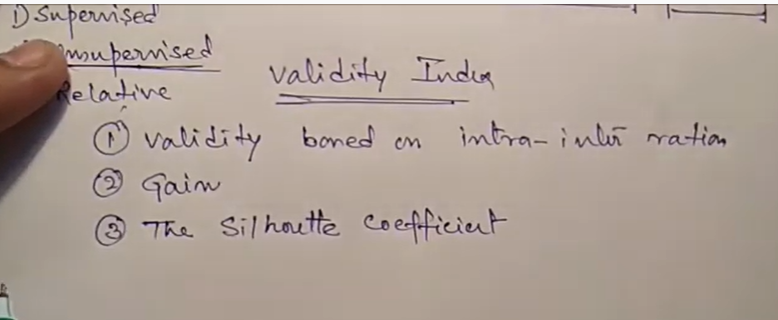 1) Supervised
unsupervised
Relative
Validity Index
① validity based on intra-inter ration
② Gain
③ The Silhoutte coefficient